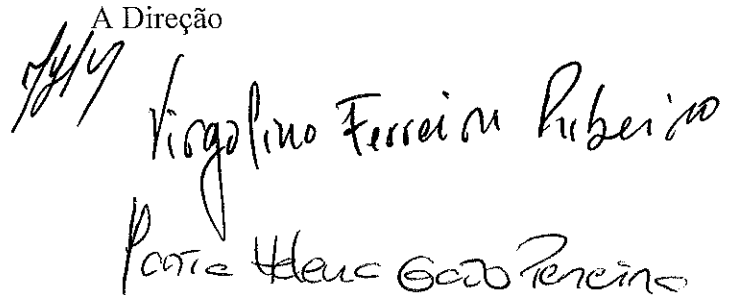 A Direção
Virgolino Ferreira Ribeiro
Maria Helena Pereira